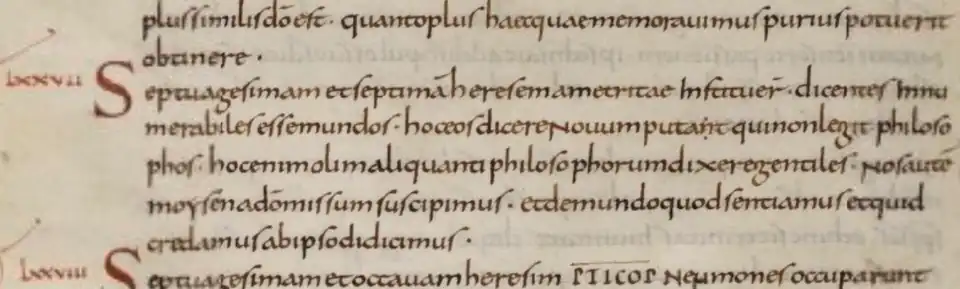 plus similis dō est · quanto plus haec quae memorauimus purius potuerit
obtinere ·
lxxvii Septuagesimam et septimā heresem ametritae Instituer̄ · dicentes Innu
merabiles esse mundos · hoc eos dicere Nouum putant qui non legit philoso
phos · hoc enim olim aliquanti philosophorum dixere gentiles · Nos autē
moysen a dōmissum suscipimus · et de mundo quod sentiamus et quid
credamus ab ipso didicimus ·
lxxviii Septuagesimam et octauam heresim PTICOP Neumones occuparunt